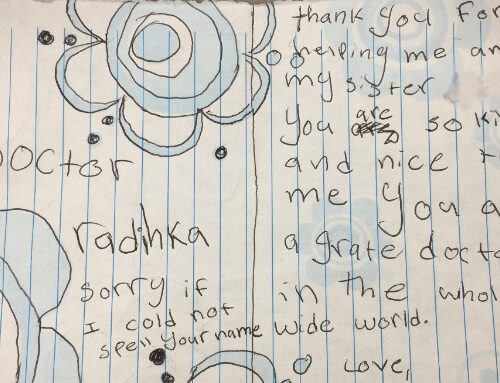 Doctor
radihka
sorry if
I cold not
spell your name
thank you for
helping me an
my sister
you are so ki
and nice t
me you a
a grate docto
in the whol
wide world.
Love,